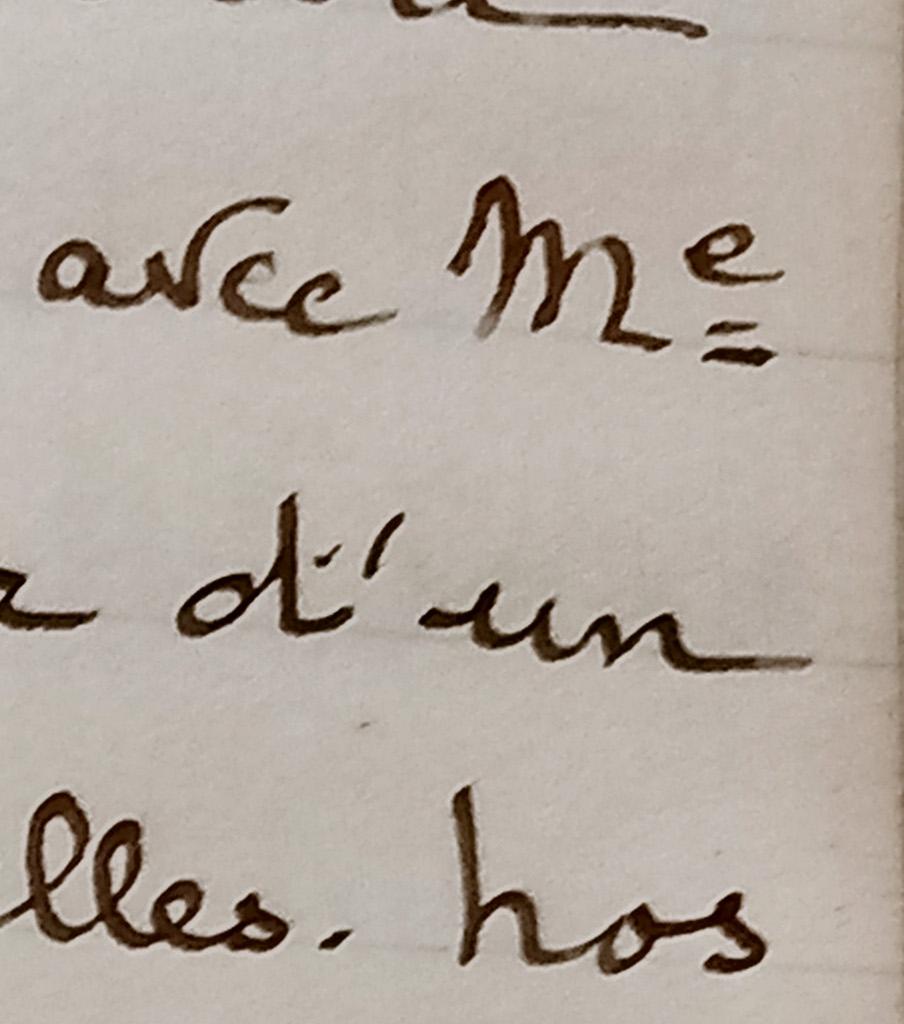 avec Mᵉ
d'un
lles. Nos